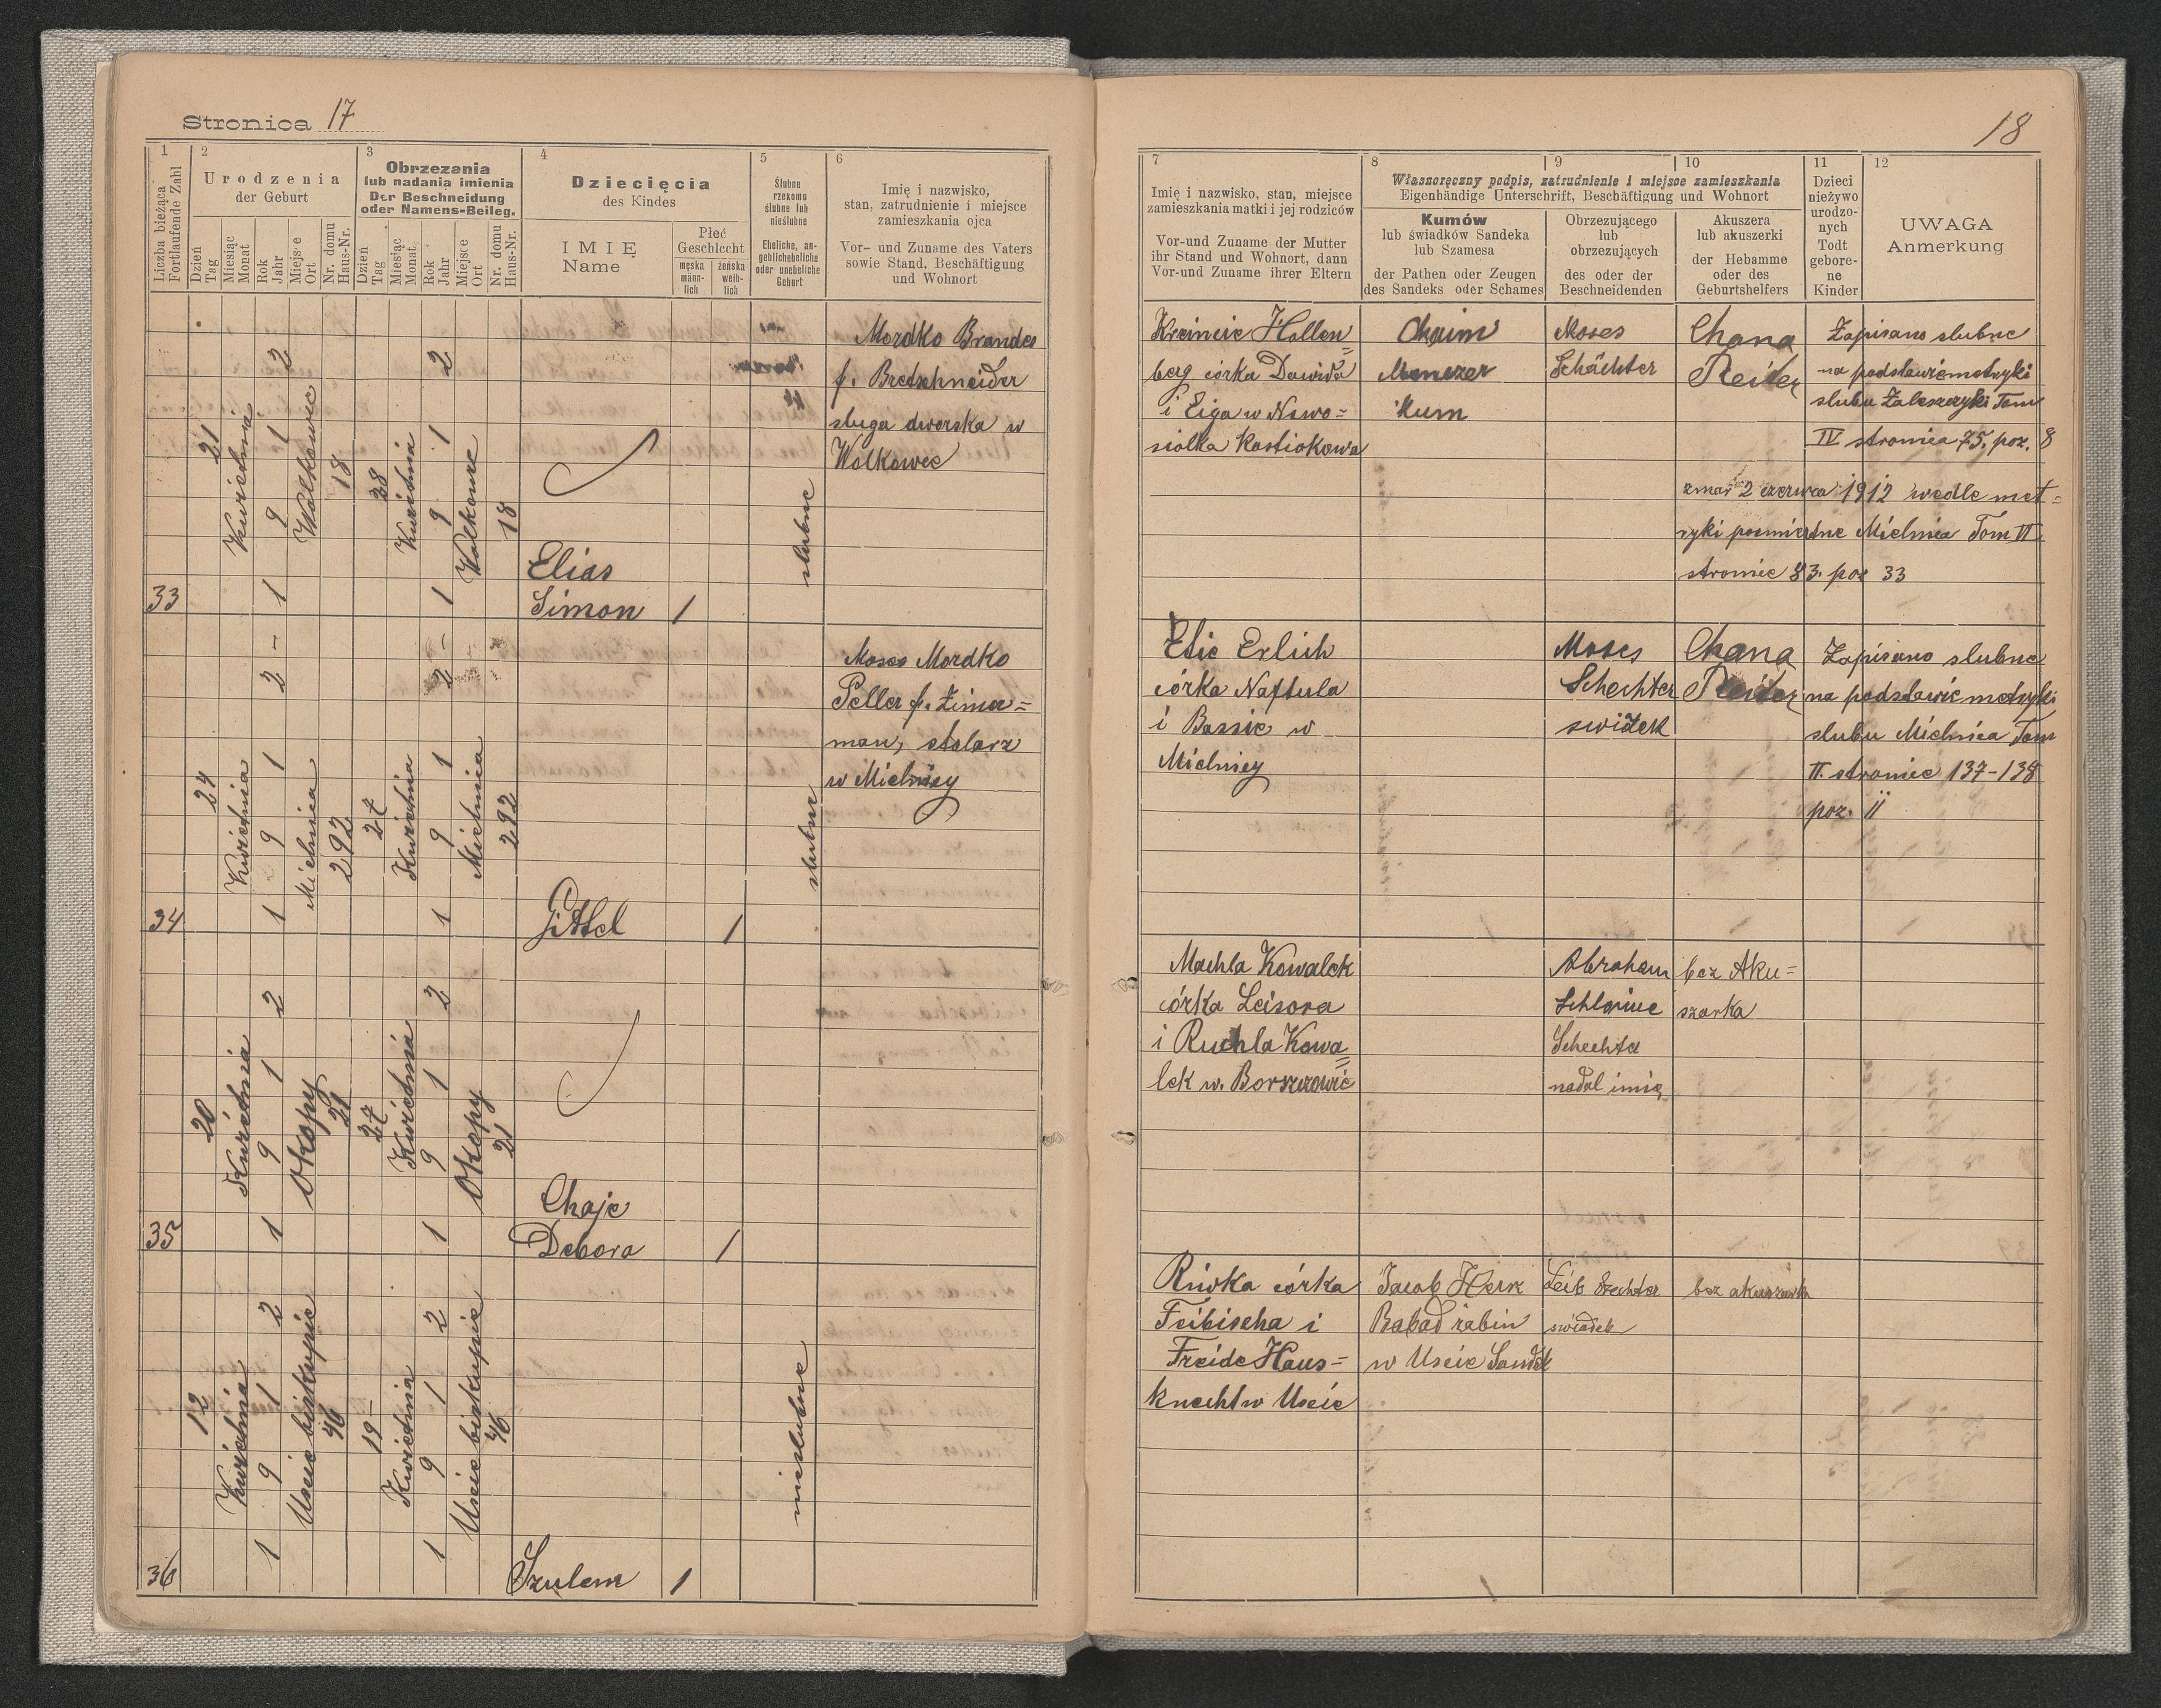 Stronica 17
1
Liczba bieżąca
Fortlaufende Zahl
2
Urodzenia
der Geburt
Dzień
Tag
Miesiąc
Monat
Rok
Jahr
Miejsce
Ort
Nr. domu
Haus-Nr.
3
Obrzezania
lub nadania imienia
Der Beschneidung
oder Namens-Beileg.
Dzień
Tag
Miesiąc
Monat
Rok
Jahr
Miejsce
Ort
Nr. domu
Haus-Nr.
4
Dziecięcia
des Kindes
IMIĘ
Name
Płeć
Geschlecht
męska
männ-
lich
żeńska
weib-
lich
5
Ślubne
rzekomo
ślubne lub
nieślubne
Eheliche, an-
geblicheheliche
oder uneheliche
Geburt
6
Imię i nazwisko,
stan, zatrudnienie i miejsce
zamieszkania ojca
Vor- und Zuname des Vaters
sowie Stand, Beschäftigung
und Wohnort
33
21
Kwietnia
1912
Wolkowce
18
28
Kwietnia
1912
Wolkowce
18
Elias
Simon
1
slubne
Mordko Brandes
f. Bretschneider
sluga dworska w
Wolkowce
34
24
Kwietnia
1912
Mielnica
292
27
Kwietnia
1912
Mielnica
292
Gittel
1
slubne
Moses Mordko
Peller f. Zimer=
man, stolarz
w Mielnicy
35
20
Kwietnia
1912
Okopy
21
27
Kwietnia
1912
Okopy
21
Chaje
Debora
1
36
12
Kwietnia
1912
Uscie biskupie
46
19
Kwietnia
1912
Uscie biskupie
46
Szulem
1
nieslubne
18
7
Imię i nazwisko, stan, miejsce
zamieszkania matki i jej rodziców
Vor-und Zuname der Mutter
ihr Stand und Wohnort, dann
Vor-und Zuname ihrer Eltern
8
9
10
Własnoręczny podpis, zatrudnienie i miejsce zamieszkania
Eigenhändige Unterschrift, Beschäftigung und Wohnort
Kumów
lub świadków Sandeka
lub Szamesa
der Pathen oder Zeugen
des Sandeks oder Schames
Obrzezującego
lub
obrzezujących
des oder der
Beschneidenden
Akuszera
lub akuszerki
der Hebamme
oder des
Geburtshelfers
11
Dzieci
nieżywo
urodzo-
nych
Todt
gebore-
ne
Kinder
12
UWAGA
Anmerkung
Kreincie Hollen=
berg córka Dawida
i Eiga w Nowo=
siolka Kostiokowa
Chaim
Menczer
Kum
Moses
Schächter
Chana
Reiter
Zapisano slubne
na podstawie metryki
slubu Zaleszczyki Tom
IV stronica 75. poz. 8
zmar 2 czerwca 1912 wedle met=
ryki posmiertne Mielnica Tom VI
stronice 83. poz 33
Etie Erlich
córka Naftula
i Bassie w
Mielnicy
Moses
Schechter
swiadek
Chana
Reiter
Zapisano slubne
na podstawie metryki
slubu Mielnica Tom
II. stronice 137-138
poz. 11
Machla Kowalek
córka Leisora
i Ruchla Kowa=
lek w. Borszczowie
Abraham
Schlomie
Schechter
nadal imię
bez Aku=
szarka
Riwka córka
Feibischa i
Freide Haus=
knecht w Uscie
Jacob Herz
Babad rabin
w Uscie Sandek
Leib Szechter
swiadek
bez akuszarki